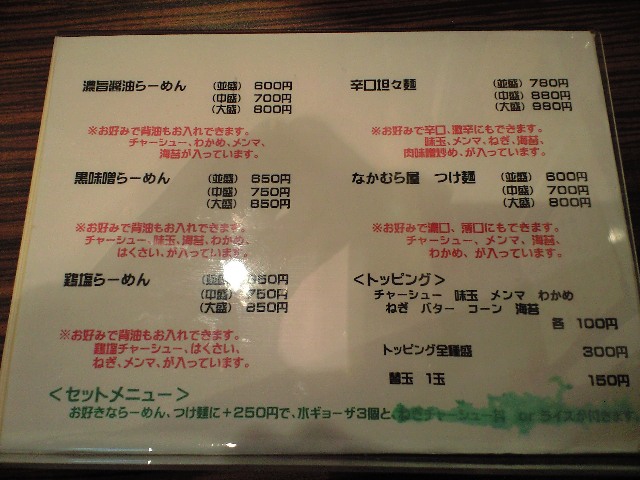 濃旨醤油らーめん (並盛) 600円
(中盛) 700円
(大盛) 800円
※お好みで背油もお入れできます。
チャーシュー、わかめ、メンマ、
海苔が入っています。
黒味噌らーめん (並盛) 650円
(中盛) 750円
(大盛) 850円
※お好みで背油もお入れできます。
チャーシュー、味玉、海苔、わかめ、
はくさい、が入っています。
鶏塩らーめん (並盛) 650円
(中盛) 750円
(大盛) 850円
※お好みで背油もお入れできます。
鶏塩チャーシュー、はくさい、
ねぎ、メンマ、が入っています。
<セットメニュー>
お好きならーめん、つけ麺に+250円で、水ギョーザ3個と、ねぎチャーシュー丼 or ライスが付きます。
辛口坦々麺 (並盛) 780円
(中盛) 880円
(大盛) 980円
※お好みで辛口、激辛にもできます。
味玉、メンマ、ねぎ、海苔、
肉味噌炒め、が入っています。
なかむら屋 つけ麺 (並盛) 600円
(中盛) 700円
(大盛) 800円
※お好みで濃口、薄口にもできます。
チャーシュー、メンマ、海苔、
わかめ、が入っています。
<トッピング>
チャーシュー 味玉 メンマ わかめ
ねぎ バター コーン 海苔
各 100円
トッピング全種盛 300円
替玉 1玉 150円